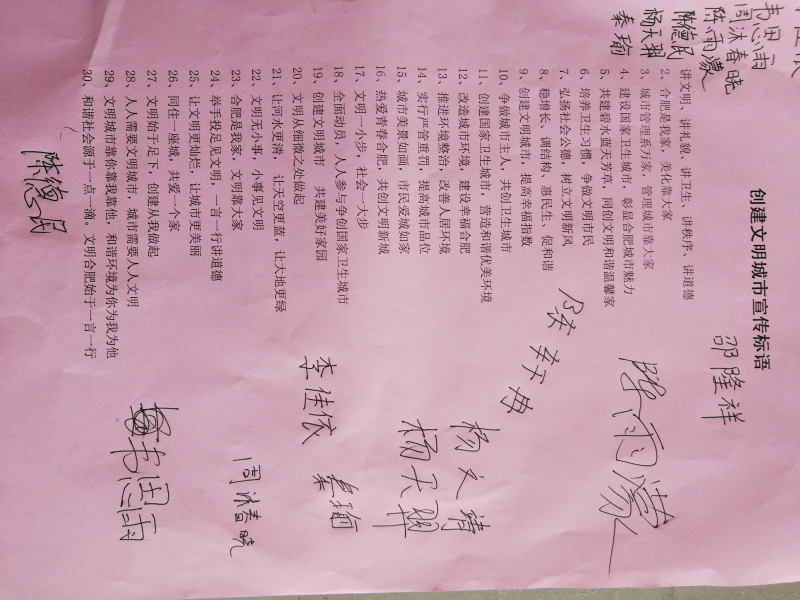 创建文明城市宣传标语
讲文明、讲礼貌、讲卫生、讲秩序、讲道德
2、合肥是我家，美化靠大家
3、城市管理系万家，管理城市靠大家
4、建设国家卫生城市，彰显合肥城市魅力
5、共建碧水蓝天芳草，同创文明和谐温馨家
6、培养卫生习惯，争做文明市民
7、弘扬社会公德，树立文明新风
8、稳增长、调结构、惠民生、促和谐
9、创建文明城市，提高幸福指数
10、争做城市主人，共创卫生城市
11、创建国家卫生城市，营造和谐优美环境
12、改造城市环境，建设幸福合肥
13、推进环境整治，改善人居环境
14、实行严管重罚，提高城市品位
15、城市美景如画，市民爱城如家
16、热爱青春合肥，共创文明新城
17、文明一小步，社会一大步
18、全面动员，人人参与争创国家卫生城市
19、创建文明城市 共建美好家园
20、文明从细微之处做起
21、让河水更清，让天空更蓝，让大地更绿
22、文明无小事，小事见文明
23、合肥是我家，文明靠大家
24、举手投足见文明，一言一行讲道德
25、让文明更灿烂，让城市更美丽
26、同住一座城，共爱一个家
27、文明始于足下，创建从我做起
28、人人需要文明城市，城市需要人人文明
29、文明城市靠你靠我靠他，和谐环境为你为我为他
30、和谐社会源于一点一滴。文明合肥始于一言一行
韦思雨
周沐春晓
陈雨濛
陈德民
杨天翔
秦瑜
邵隆祥
陈雨濛
杨文靖
杨天翔
李佳依
秦瑜
周沐春晓
韦思雨
陈德民